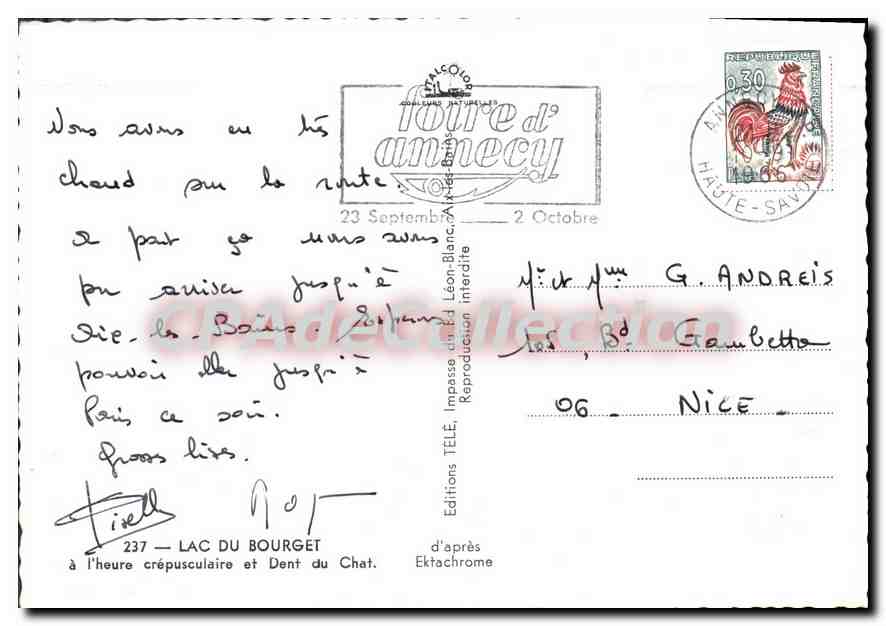 Nous avons eu très
chaud sur la route.
A part ça nous avons
pu arriver jusqu'à
Aix-les-Bains. Espérons
pouvoir aller jusqu'à
Paris ce soir.
Grosses bises.
237 — LAC DU BOURGET
à l'heure crépusculaire et Dent du Chat.
d'après
Ektachrome
Editions TELÉ, Impasse du Bd Léon-Blanc, Aix-les-Bains
Reproduction interdite
ITALCOLOR
COULEURS NATURELLES
foire d'
annecy
23 Septembre 2 Octobre
REPUBLIQUE FRANÇAISE
0,30
1966
HAUTE-SAVOIE
Mr et Mme G. ANDREIS
105, Bd Gambetta
06 - NICE -
CPAdeCollection